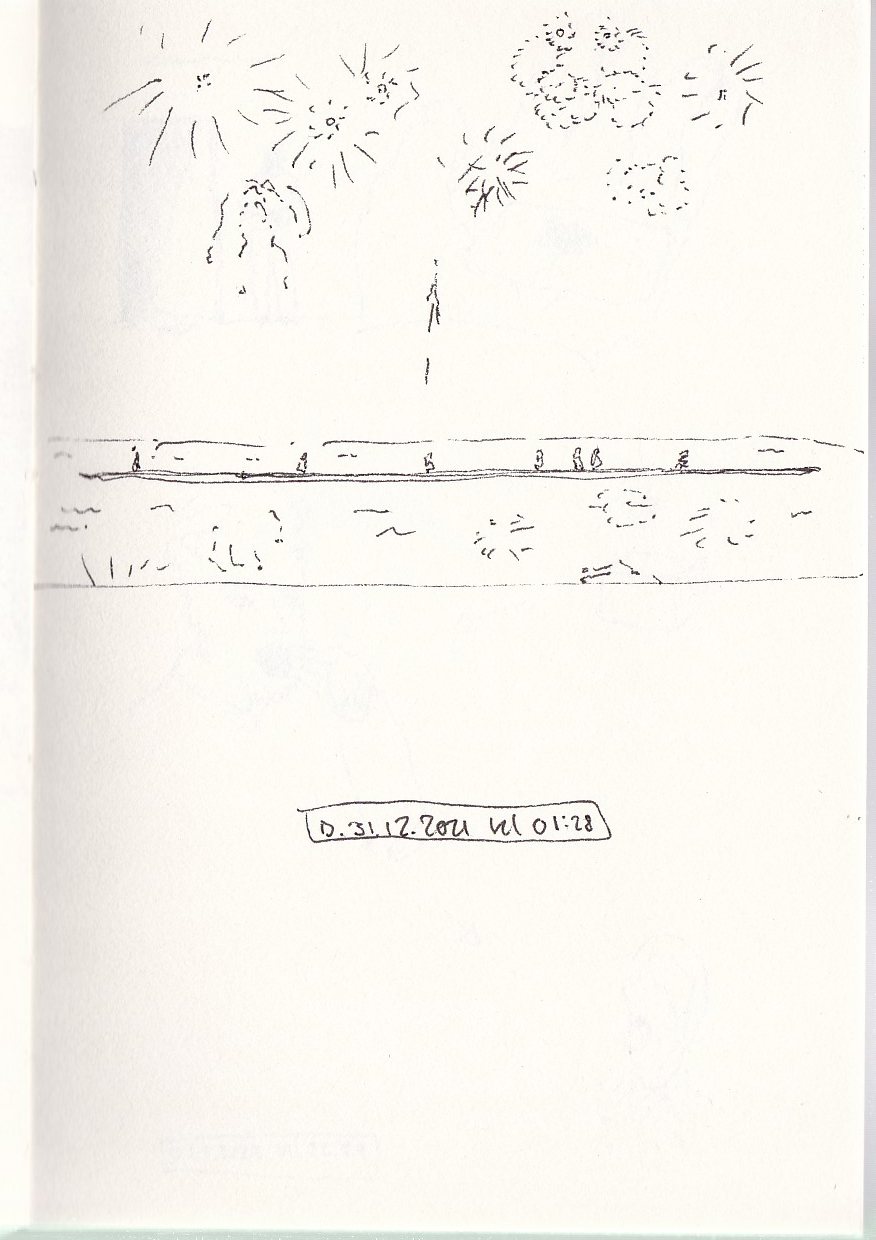 D. 31.12.2021 kl 01:28